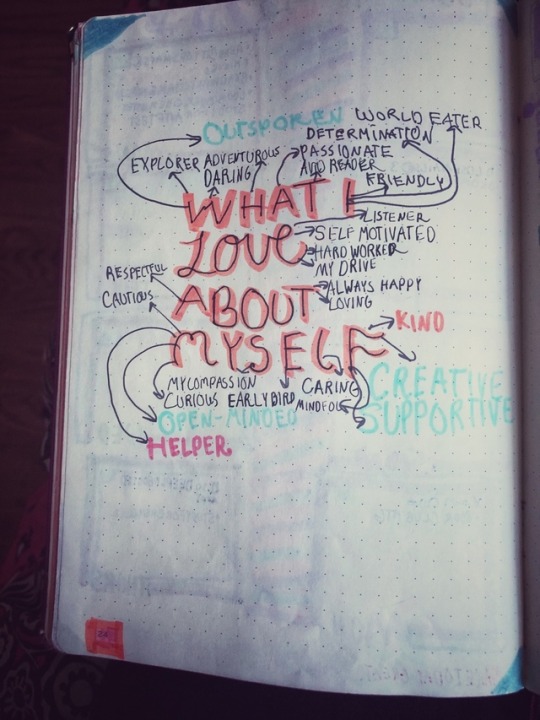 OUTSPOKEN WORLD EATER
DETERMINATION
EXPLORER ADVENTUROUS PASSIONATE
DARING AVID READER
FRIENDLY
WHAT I
LISTENER
LOVE SELF MOTIVATED
HARD WORKER
RESPECTFUL MY DRIVE
CAUTIOUS ABOUT ALWAYS HAPPY
LOVING
KIND
MYSELF
MY COMPASSION CARING CREATIVE
CURIOUS EARLY BIRD MINDFUL
OPEN-MINDED SUPPORTIVE
HELPER